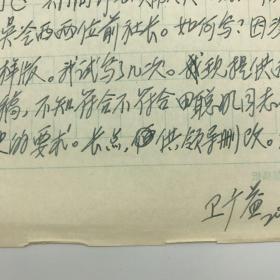 吴冷西两位前社长。如何写？因
样做。我试写了几次。我现提供
稿，不知符合不符合田聪明同志
的要求。长点，供领导删改。
卫广益